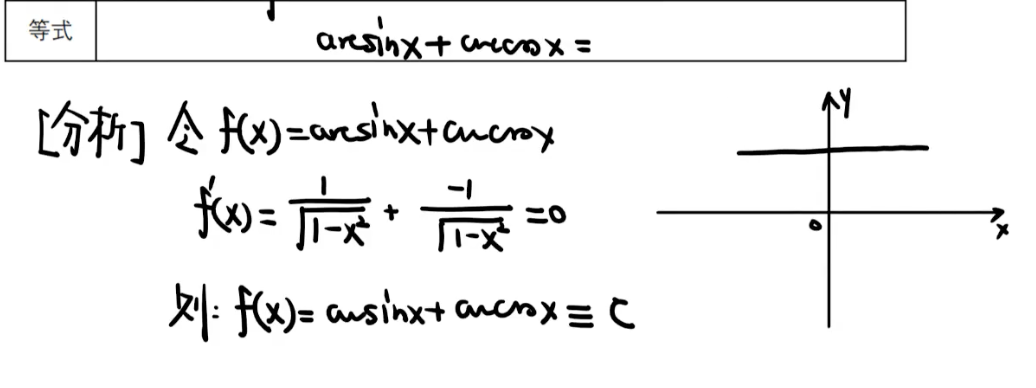 等式
arcsinx + arccosx =
[分析] 令 f(x) = arcsinx + arccosx
f'(x) = \frac{1}{\sqrt{1-x^2}} + \frac{-1}{\sqrt{1-x^2}} = 0
则: f(x) = arcsinx + arccosx ≡ C
y
0
x